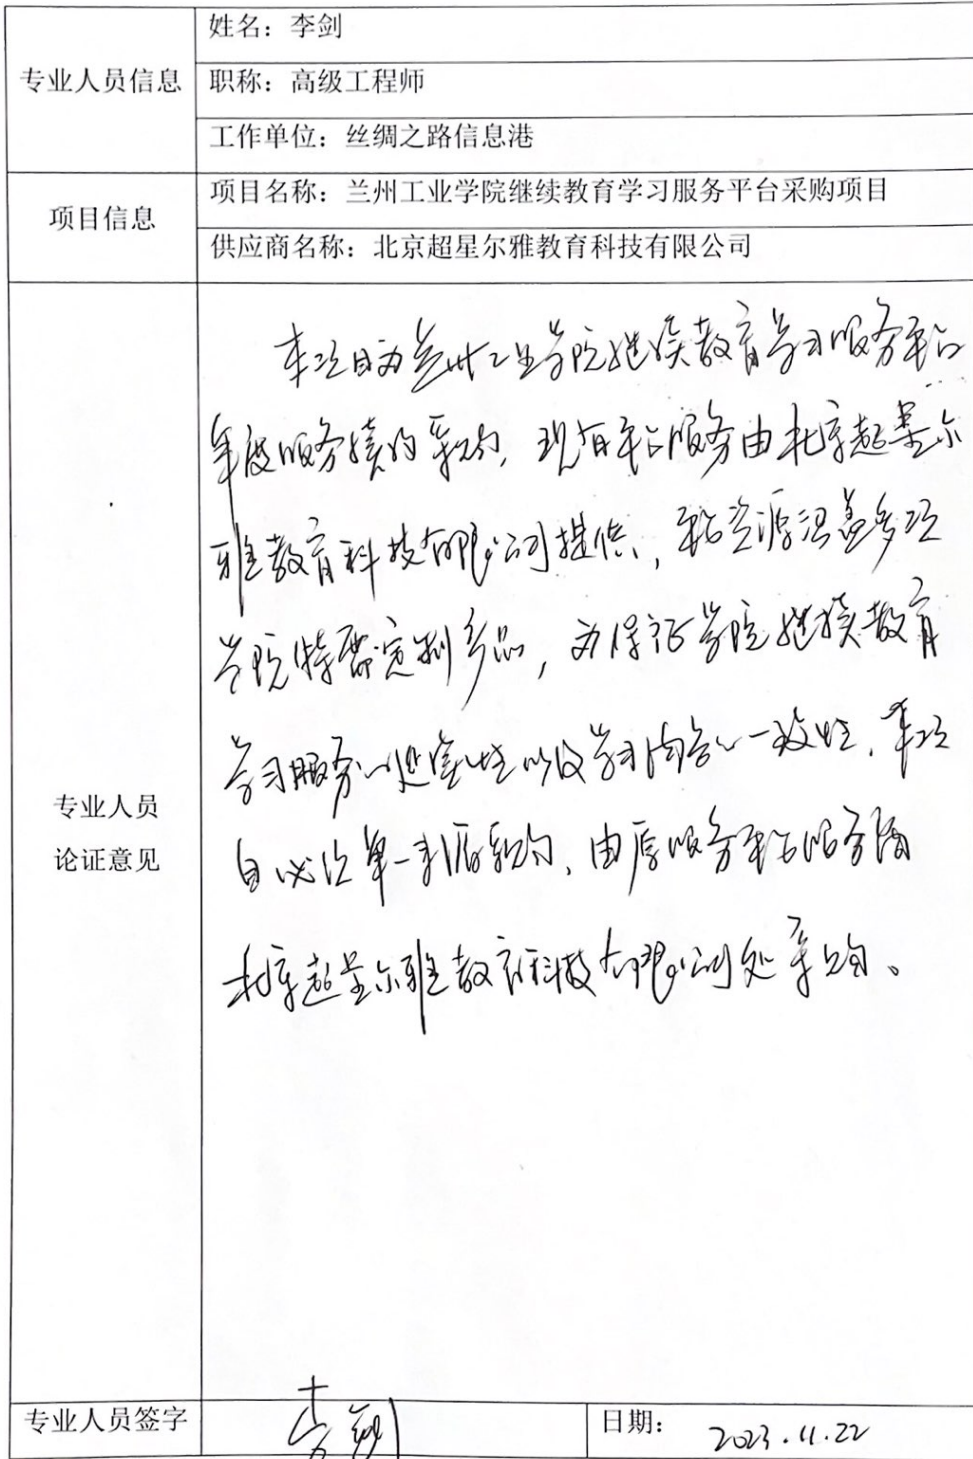 专业人员信息
姓名：李剑
职称：高级工程师
工作单位：丝绸之路信息港
项目信息
项目名称：兰州工业学院继续教育学习服务平台采购项目
供应商名称：北京超星尔雅教育科技有限公司
专业人员
论证意见
本项目为兰州工业学院继续教育学习服务平台
年度服务续约采购，现有平台服务由北京超星尔
雅教育科技有限公司提供，平台资源涵盖多项
学院特需定制产品，为保证学院继续教育
学习服务的延续性以及学习内容的一致性，本项
目必须单一来源采购，由原服务平台服务商
北京超星尔雅教育科技有限公司处采购。
专业人员签字
李剑
日期：
2023.11.22